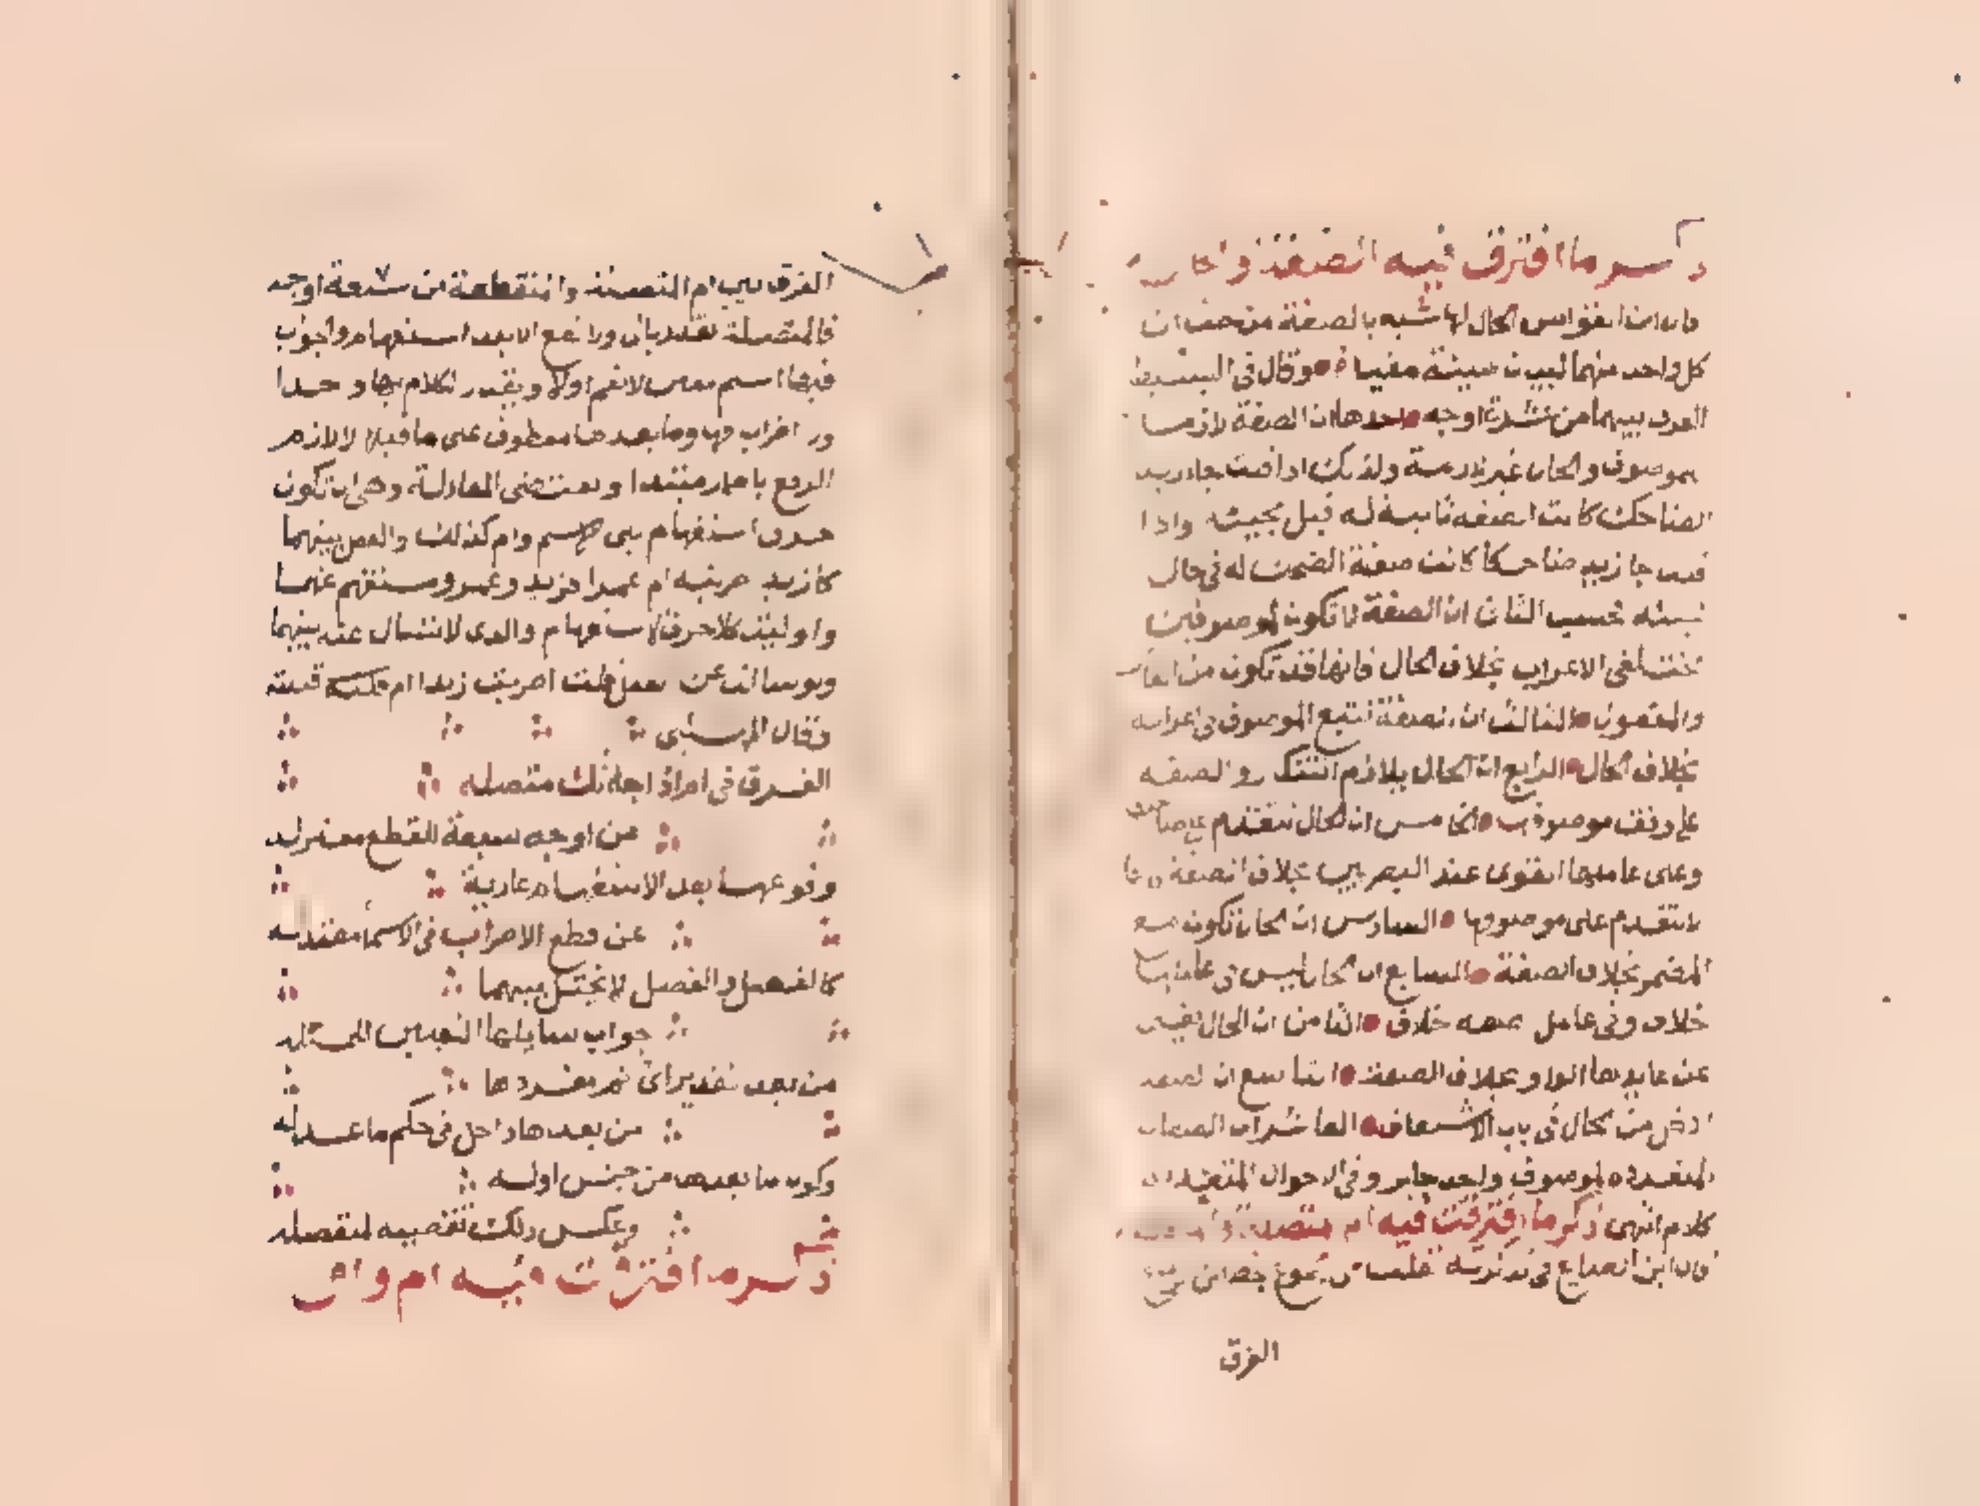 ذكر ما افترق فيه الصفة والحال
كل واحد منهما لبيان هيئة مقيدا وقال في البسيط
الفرق بينهما من عشرة اوجه احدها ان الصفة لازمة
للموصوف والحال غير لازمة ولذلك اذا قلت جاء زيد
الضاحك كانت الصفة ثابتة له قبل مجيئه واذا
قلت جا زيد ضاحكا كانت صفة الضحك له في حال
مجيئه فحسب الثاني ان الصفة لا تكون لموصوفين
مختلفي الاعراب بخلاف الحال فانها قد تكون من الفاعل
والمفعول الثالث ان الصفة تتبع الموصوف في اعرابه
بخلاف الحال الرابع ان الحال يلازم التنكير والصفة
على وفق موصوفها الخامس ان الحال تتقدم على صاحبها
وعلى عاملها القوى عند البصريين بخلاف الصفة فانها
لا تتقدم على موصوفها السادس ان الحال تكون مع
المضمر بخلاف الصفة السابع ان الحال ليس في عاملها
خلاف وفي عامل الصفة خلاف الثامن ان الحال يغني
عن عايدها الواو بخلاف الصفة التاسع ان الصفة
ادخل من الحال في باب الاشتقاق العاشر ان الصفات
المتعددة لموصوف واحد جايز وفي الاحوال المتعددة
كلام انتهى ذكر ما افترقت فيه ام المتصلة والمنقطعة
قال ابن الصايغ في تذكرته نقلت من مجموع بخط ابن
الفرق
الفرق بين ام المتصلة والمنقطعة من سبعة اوجه
فالمتصلة تقدر باي ولا تقع الا بعد استفهام والجواب
فيها اسم معين لا نعم او لا ويقدر الكلام بها واحدا
ولا اضراب فيها وما بعدها معطوف على ما قبلها لا لازم
الرفع باضمار مبتدا وتقتضى المعادلة وهي ان تكون
حرف استفهام يلي الاسم وام كذلك والفعل بينهما
كازيد ضربته ام عمرا فزيد وعمرو مستفهم عنهما
واوليت كلا حرف الاستفهام والذي لا تسال عنه بينهما
ولو سالت عن الفعل قلت اضربت زيدا ام قتلته
وقال المهلبي
الفرق في ام اذا جاتك متصله
من اوجه سبعة للقطع معتزله
وقوعها بعد الاستفهام عارية
عن قطع الاضراب في الاسما معتدله
كالفعل والفصل لا يختل بينهما
جواب سايلها التعيين للمسئله
من بعد تقدير اي ثم مفردها
من بعدها داخل في حكم ما عدله
وكون ما بعدها من جنس اوله
وعكس ذلك تقضيه لمنفصله
ذكر ما افترقت فيه ام واو